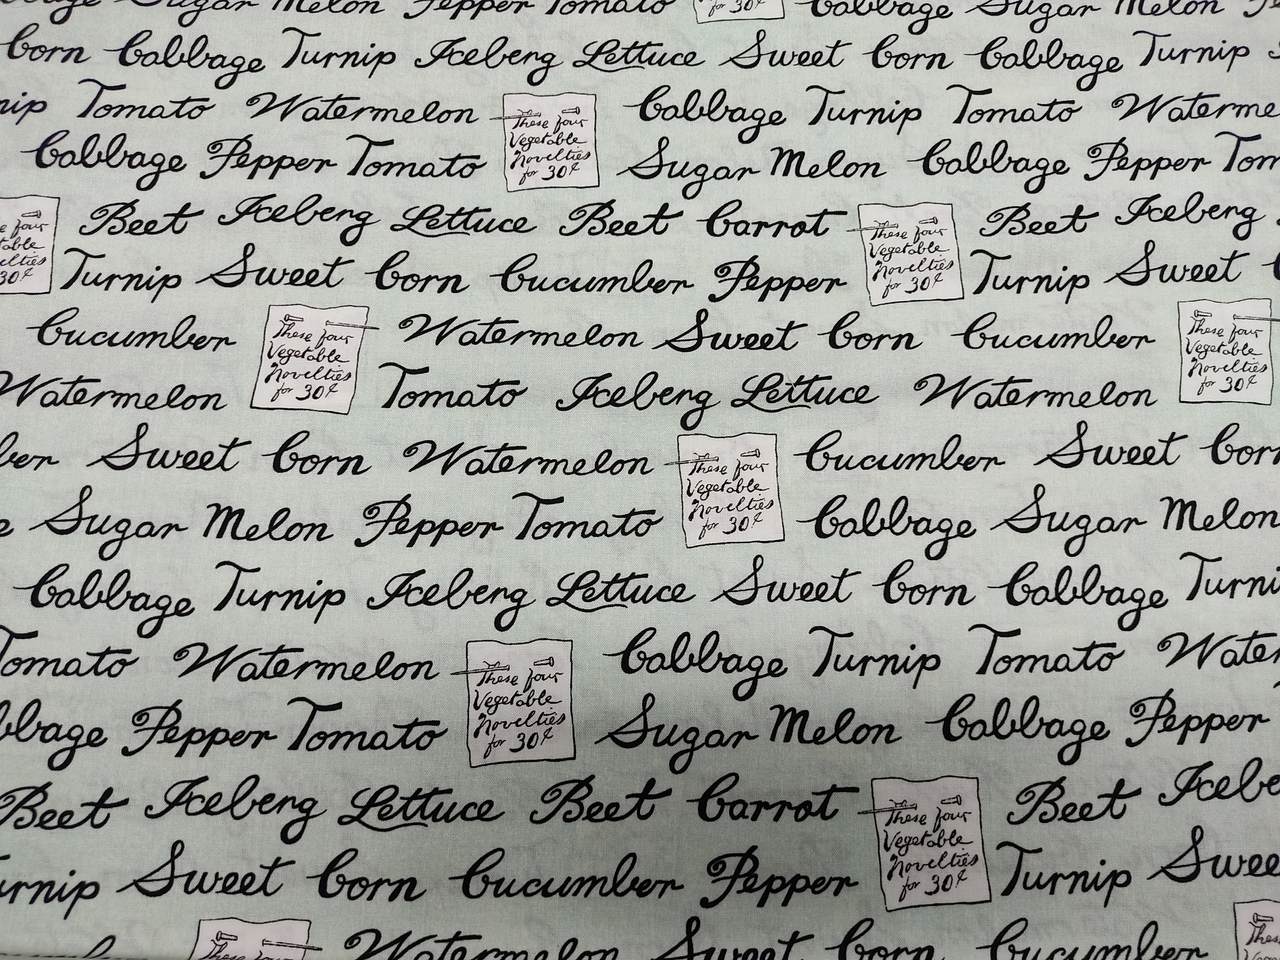 Cabbage Sugar Melon Pepper Tomato for 30¢ Cabbage Sugar Melon
Corn Cabbage Turnip Iceberg Lettuce Sweet Corn Cabbage Turnip
Tomato Watermelon Cabbage Turnip Tomato
These four
Vegetable
Novelties
for 30¢
Cabbage Pepper Tomato Sugar Melon Cabbage Pepper
Beet Iceberg Lettuce Beet Carrot Beet Iceberg
These four
Vegetable
Novelties
for 30¢
30¢
Turnip Sweet Corn Cucumber Pepper Turnip Sweet
Cucumber Watermelon Sweet Corn Cucumber
These four
Vegetable
Novelties
for 30¢
These four
Vegetable
Novelties
for 30¢
Watermelon Tomato Iceberg Lettuce Watermelon
Sweet Corn Watermelon Cucumber Sweet Corn
These four
Vegetable
Novelties
for 30¢
Sugar Melon Pepper Tomato Cabbage Sugar Melon
Cabbage Turnip Iceberg Lettuce Sweet Corn Cabbage
Tomato Watermelon Cabbage Turnip Tomato
These four
Vegetable
Novelties
for 30¢
Pepper Tomato Sugar Melon Cabbage Pepper
Beet Iceberg Lettuce Beet Carrot Beet
These four
Vegetable
Novelties
for 30¢
Sweet Corn Cucumber Pepper Turnip
These four Watermelon Sweet Corn Cucumber These